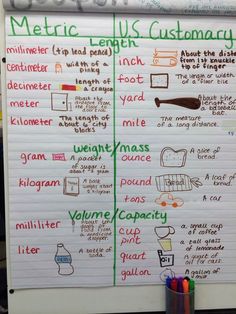 Metric U.S. Customary
Length
millimeter (tip lead pencil)
centimeter width of a pinky
decimeter length of a crayon
meter About the distance from the floor to
kilometer The length of about 6 city blocks
inch About the distance from 1st knuckle tip of finger
foot The length or width of a floor tile
yard About the length of a baseball bat
mile The measure of a long distance.
weight/mass
gram A packet of sugar is about
kilogram A book weighs about a
ounce A slice of bread.
pound A loaf of bread.
tons A car
Volume/Capacity
milliliter from a medicine dropper
liter A bottle of soda.
cup a small cup of coffee
pint a tall glass of lemonade
quart A quart of oil for cars.
gallon A gallon of milk